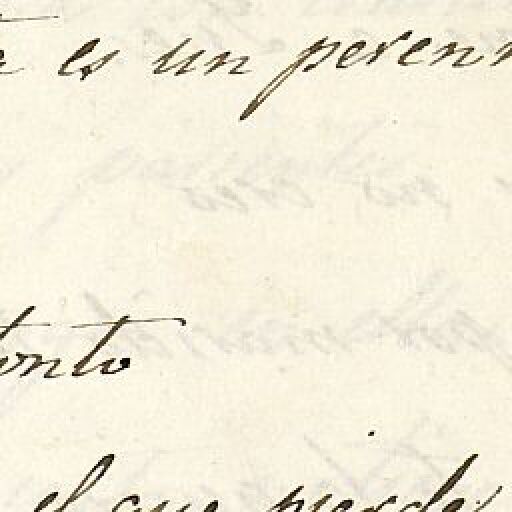 es un peren
tonto
el que pierde